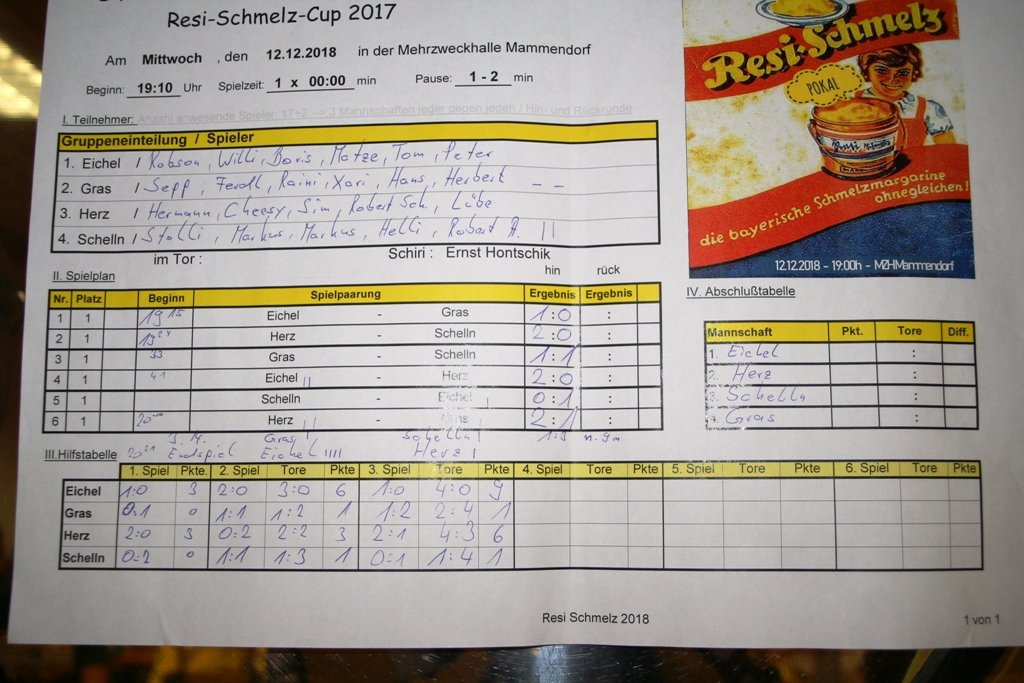 Resi-Schmelz-Cup 2017
Am Mittwoch , den 12.12.2018 in der Mehrzweckhalle Mammendorf
Beginn: 19:10 Uhr Spielzeit: 1 x 00:00 min Pause: 1 - 2 min
I. Teilnehmer: Anzahl anwesende Spieler: 17+2 --> 3 Mannschaften jeder gegen jeden / Hin- und Rückrunde
Gruppeneinteilung / Spieler
1. Eichel / Robson, Willi, Boris, Matze, Tom, Peter
2. Gras / Sepp, Ferdl, Raini, Xari, Hans, Herbert - -
3. Herz / Hermann, Cheesy, Sim, Robert Sch., Lübe
4. Schelln / Stolli, Markus, Markus, Helli, Robert A. ||
im Tor : Schiri : Ernst Hontschik
II. Spielplan hin rück
Nr. Platz Beginn Spielpaarung Ergebnis Ergebnis
1 1 19 15 Eichel - Gras 1:0 :
2 1 19 24 Herz - Schelln 2:0 :
3 1 33 Gras - Schelln 1:1 :
4 1 41 Eichel || - Herz 2:0 :
5 1 Schelln - Eichel | 0:1 :
6 1 20 Herz || - Gras | 2:1 :
Gras | Schelln | 1:3
20 21 Endspiel Eichel |||| Herz |
III.Hilfstabelle
1. Spiel Pkte. 2. Spiel Tore Pkte 3. Spiel Tore Pkte 4. Spiel Tore Pkte 5. Spiel Tore Pkte 6. Spiel Tore Pkte
Eichel 1:0 3 2:0 3:0 6 1:0 4:0 9
Gras 0:1 0 1:1 1:2 1 1:2 2:4 1
Herz 2:0 3 0:2 2:2 3 2:1 4:3 6
Schelln 0:2 0 1:1 1:3 1 0:1 1:4 1
Resi-Schmelz
POKAL
Resi-Schmelz
die bayerische Schmelzmargarine
ohnegleichen!
12.12.2018 - 19:00h - MZHMammendorf
IV. Abschlußtabelle
Mannschaft Pkt. Tore Diff.
1. Eichel :
2. Herz :
3. Schelln :
4. Gras :
Resi Schmelz 2018
1 von 1